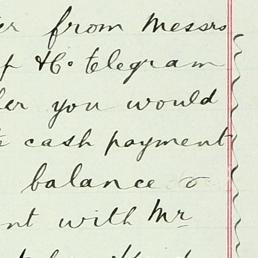 er from Messrs
f & Co telegram
er you would
cash payment
balance
nt with Mr